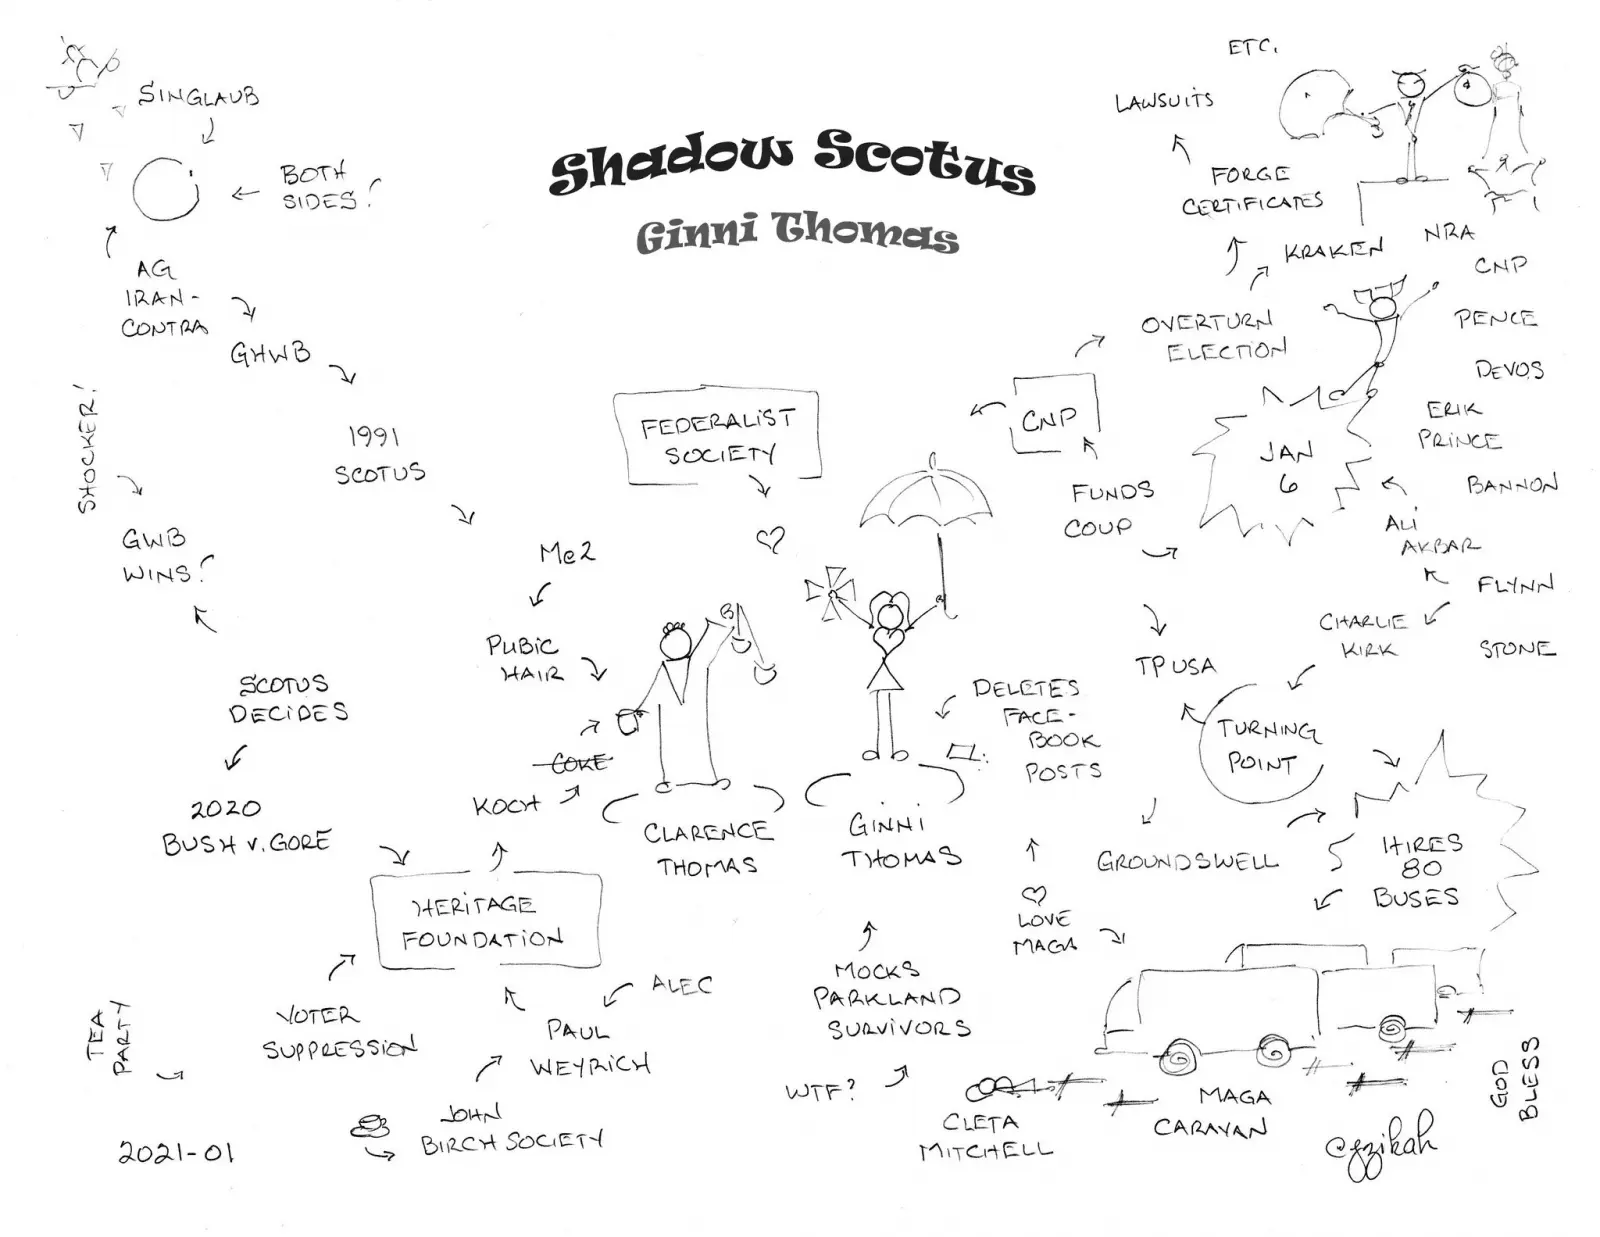 Shadow Scotus
Ginni Thomas
SINGLAUB
BOTH
SIDES!
AG
IRAN-
CONTRA
GHWB
1991
SCOTUS
Me2
PUBIC
HAIR
COKE
KOCH
SHOCKER!
GWB
WINS!
SCOTUS
DECIDES
2020
BUSH v. GORE
HERITAGE
FOUNDATION
VOTER
SUPPRESSION
TEA
PARTY
ALEC
PAUL
WEYRICH
JOHN
BIRCH SOCIETY
2021-01
FEDERALIST
SOCIETY
CLARENCE
THOMAS
GINNI
THOMAS
DELETES
FACE-
BOOK
POSTS
LOVE
MAGA
MOCKS
PARKLAND
SURVIVORS
WTF?
CLETA
MITCHELL
CNP
FUNDS
COUP
TPUSA
GROUNDSWELL
OVERTURN
ELECTION
KRAKEN
FORGE
CERTIFICATES
LAWSUITS
ETC.
NRA
CNP
PENCE
DEVOS
ERIK
PRINCE
BANNON
JAN
6
ALI
AKBAR
FLYNN
CHARLIE
KIRK
STONE
TURNING
POINT
HIRES
80
BUSES
MAGA
CARAVAN
GOD
BLESS
@gzikah